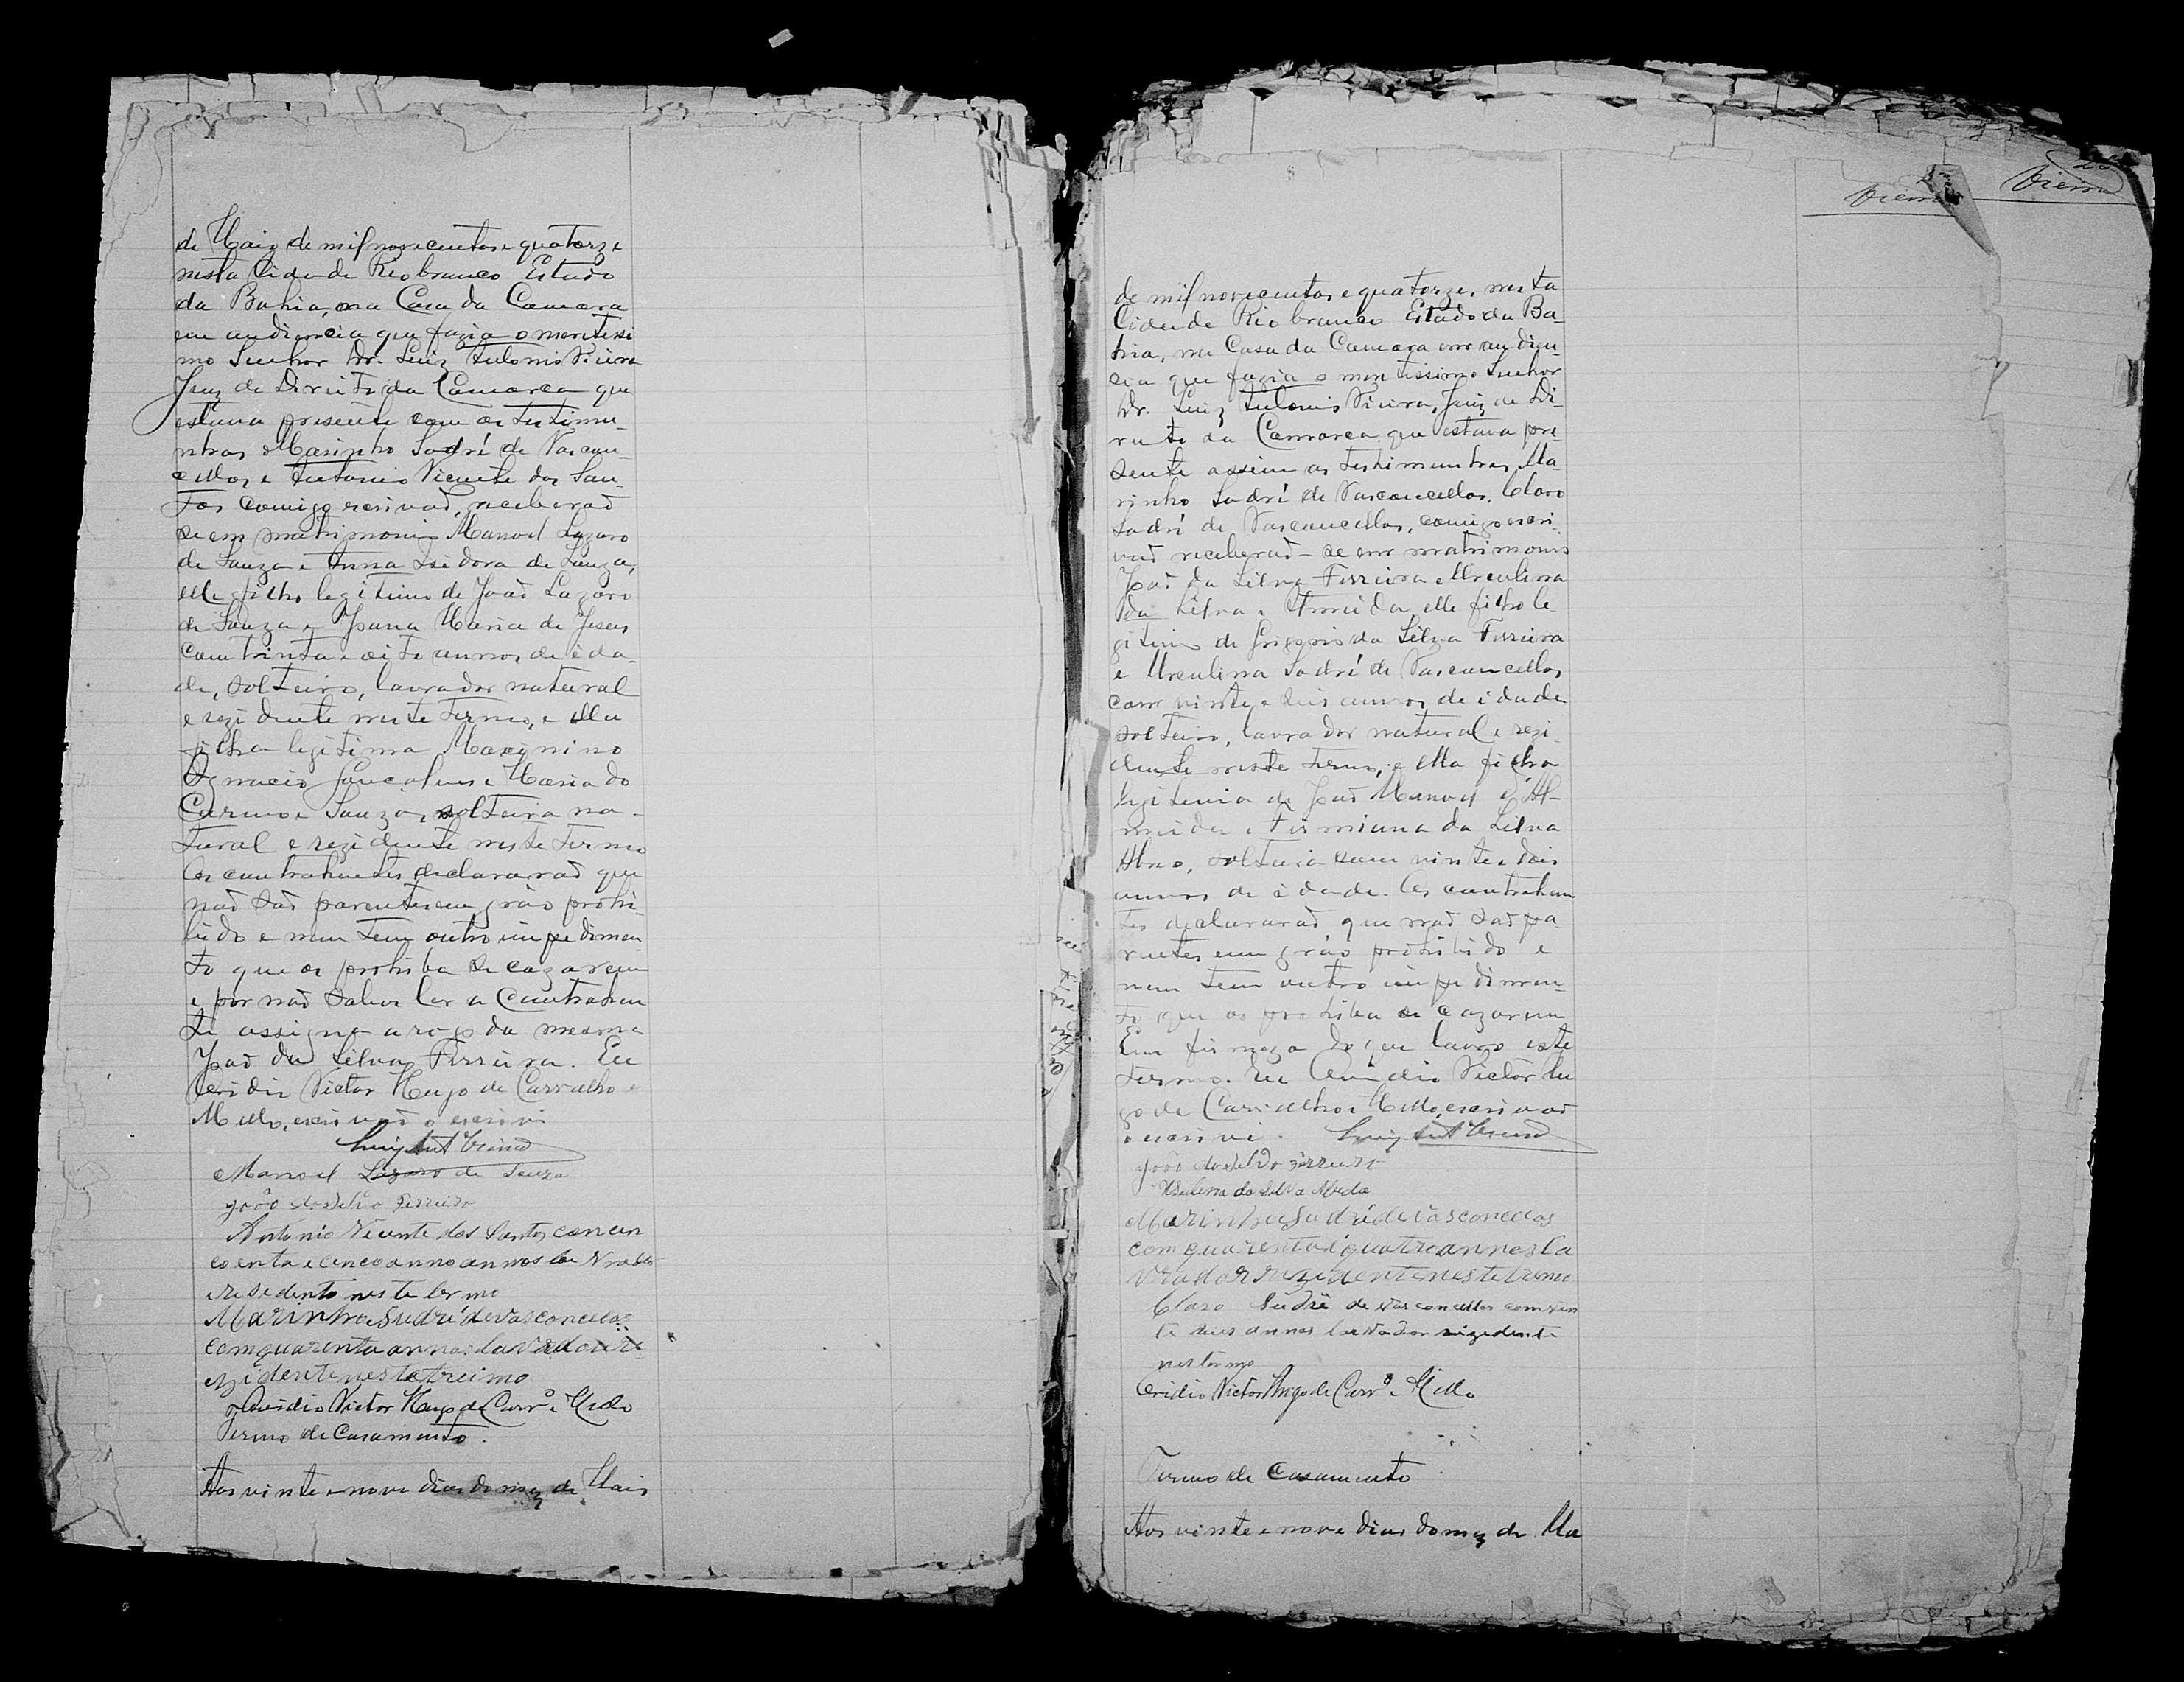 de Maio de mil novecentos e quatorze
nesta Cidade de Rio branco Estado
da Bahia, na Casa da Camara
em audiencia que fazia o meretissi
mo Senhor Dr. Luiz Antonio Vieira
Juiz de Direito da Comarca que
estava presente com as testimu-
nhas Marinho Sodré de Vascon-
cellos e Antonio Vicente dos San-
tos comigo escrivaõ, receberaõ
se em matrimonio Manoel Lazaro
de Souza e Anna Isidora de Souza,
elle filho legitimo de Joaõ Lazaro
de Souza e Joana Maria de Jesus
com trinta e oito annos de ida-
de, solteiro, lavrador natural
e rezidente neste termo, e ella
filha legitima
Ignacio Gonçalves e Maria do
Carmo e Souza, solteira na-
tural e rezidente neste termo
Os contrahentes declararaõ que
naõ saõ parentes em gráo prohi-
bido e nem tem outro impedimen
to que os prohiba de cazarem
e por naõ saber ler a Contrahen
te assigna a rogo da mesma
Joaõ da Silva Ferreira. Eu
Ovidio Victor Hugo de Carvalho e
Mello, escrivaõ o escrivi
Luiz Ant Vieira
Manoel Lazaro de Souza
joão da Silva Ferreira
Antonio Vicente dos Santos con cin
coenta e cinco anno annos la vrador
resedente neste termo
Marinho Sudré de Vasconcelos
com quarenta annos lavrador re
zidente neste treimo
Ovidio Victor Hugo de Carvº e Mello
Termo de Casamento.
Aos vinte e nove dias do mez de Maio
Vieira
Vieira
de mil novecentos e quatorze, nesta
Cidade de Rio branco Estado da Ba-
hia, na Casa da Camara em audien-
cia que fazia o meretissimo Senhor
Dr. Luiz Antonio Vieira, Juiz de Di-
reito da Comarca que estava pre-
sente assim as testimunhas Ma-
rinho Sodré de Vasconcellos, Claro
Sodré de Vasconcellos, comigo escri-
vaõ receberaõ-se em matrimonio
Joaõ da Silva Ferreira e Urculina
da Silva e Almeida, elle filho le-
gitimo de Grigorio da Silva Ferreira
e Urculina Sodré de Vasconcellos
com vinte e seis annos de idade
solteiro, lavrador natural e rezi-
dente neste termo, e ella filha
legitimia de Joaõ Manoel d'Al-
meida e Firmiana da Silva
solteira com vinte e dois
annos de idade. Os contrahen
tes declararaõ que naõ saõ pa-
rentes em gráo prohibido e
nem tem outro impedimen-
to que os prohiba de cazarem
Em firmeza do que lavro este
termo. Eu Ovidio Victor Hu
go de Carvalho e Mello, escrivaõ
o escrivi. Luiz Ant Vieira
joão da Silva Ferreira
Marinho Sudré de Vasconcelos
com quarenta i quatro annos la
vrador rezidente neste treimo
Claro Sudré de Vasconcellos com vin
te seis annos lavrador rezedente
nes termo
Ovidio Victor Hugo de Carvº e Mello
Termo de Casamento
Aos vinte e nove dias do mez de Ma